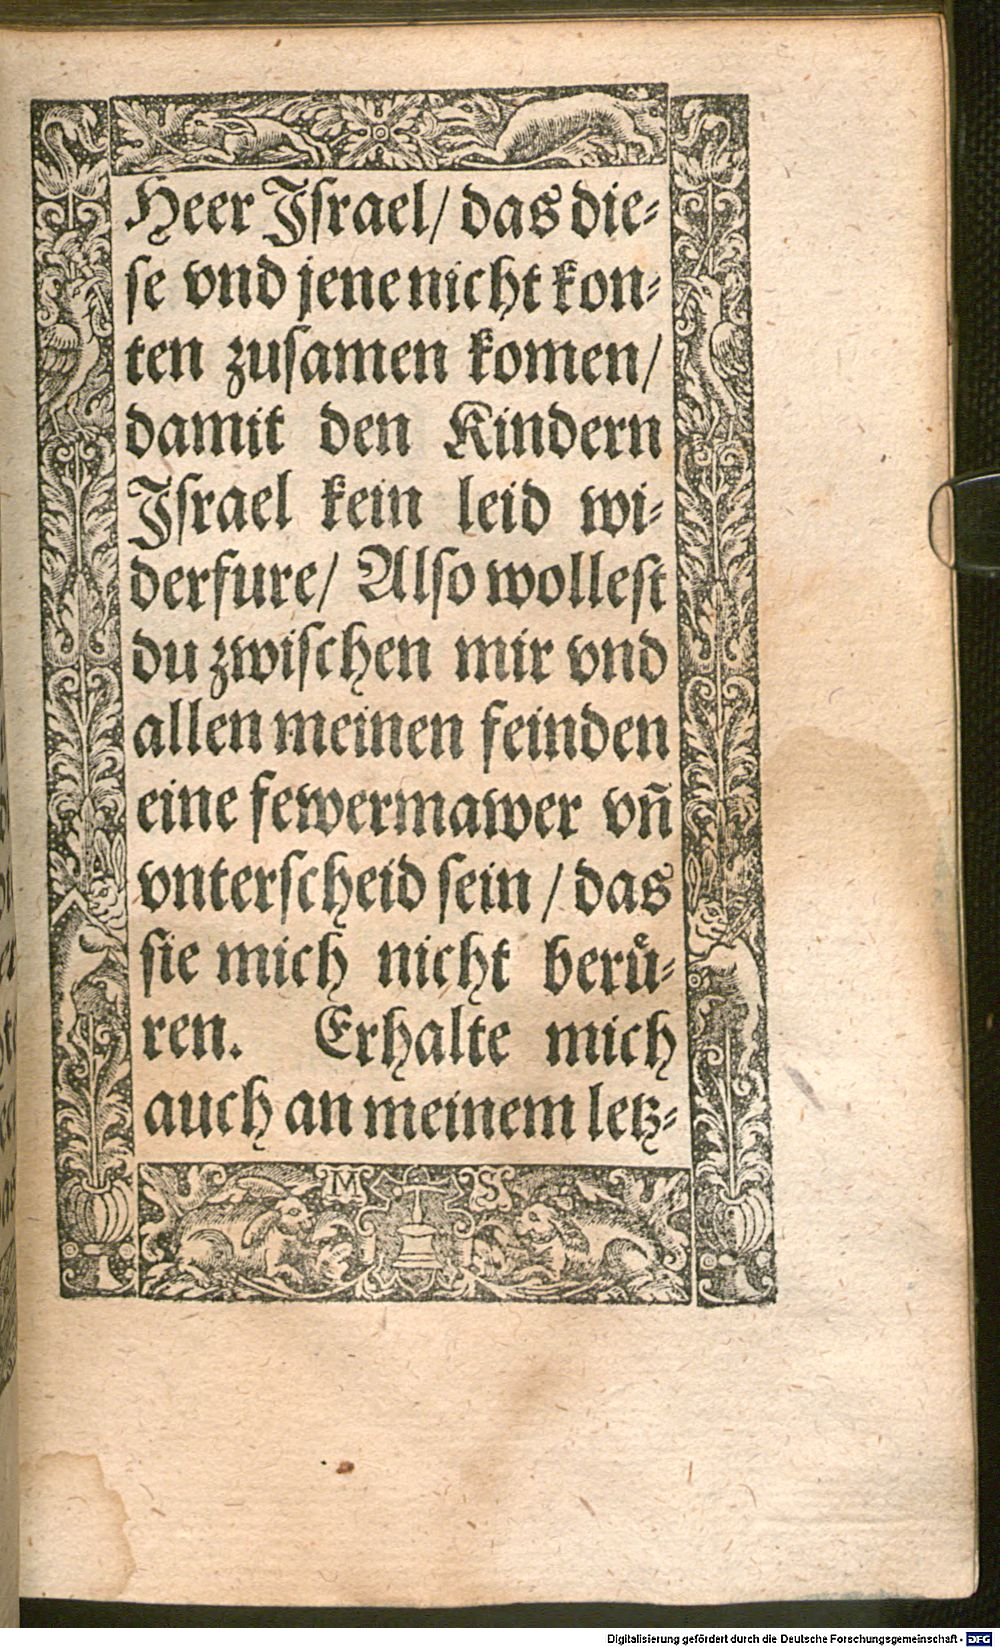 Heer Iſrael/ das die⸗
ſe vnd jene nicht kon⸗
ten zuſamen komen/
damit den Kindern
Iſrael kein leid wi⸗
derfure/ Alſo wolleſt
du zwiſchen mir vnd
allen meinen feinden
eine fewermawer vñ
vnterſcheid ſein / das
ſie mich nicht beruͤ⸗
ren. Erhalte mich
auch an meinem letz⸗
M S
Digitalisierung gefördert durch die Deutsche Forschungsgemeinschaft - DFG